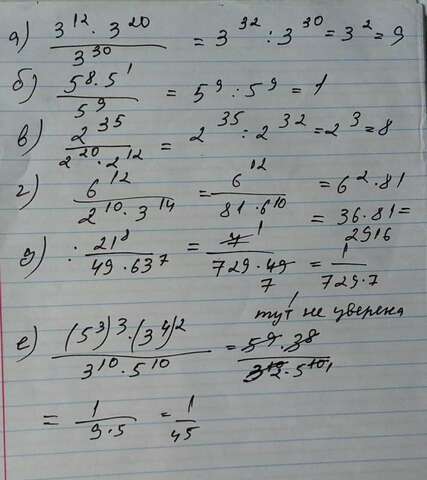 а) 3^12 · 3^20 / 3^30 = 3^32 : 3^30 = 3^2 = 9
б) 5^8 · 5^1 / 5^9 = 5^9 : 5^9 = 1
в) 2^35 / 2^20 · 2^12 = 2^35 : 2^32 = 2^3 = 8
г) 6^12 / 2^10 · 3^14 = 6^12 / 81 · 6^10 = 6^2 · 81
= 36 · 81 =
2916
д) : 21^8 / 49 · 63^7 = 7^1 / 729 · 49 7 = 1 / 729 · 7
тут не уверена
е) (5^3)^3 · (3^4)^2 / 3^10 · 5^10 = 5^9 · 3^8 / 3^10 2 · 5^10 1
= 1 / 9 · 5 = 1 / 45